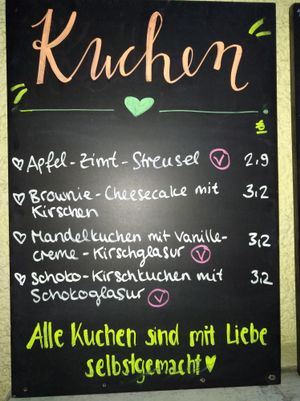 Kuchen
€
Apfel-Zimt-Streusel V 2,9
Brownie-Cheesecake mit 3,2
Kirschen
Mandelkuchen mit Vanille- 3,2
creme-Kirschglasur V
Schoko-Kirschkuchen mit 3,2
Schokoglasur V
Alle Kuchen sind mit Liebe
selbstgemacht